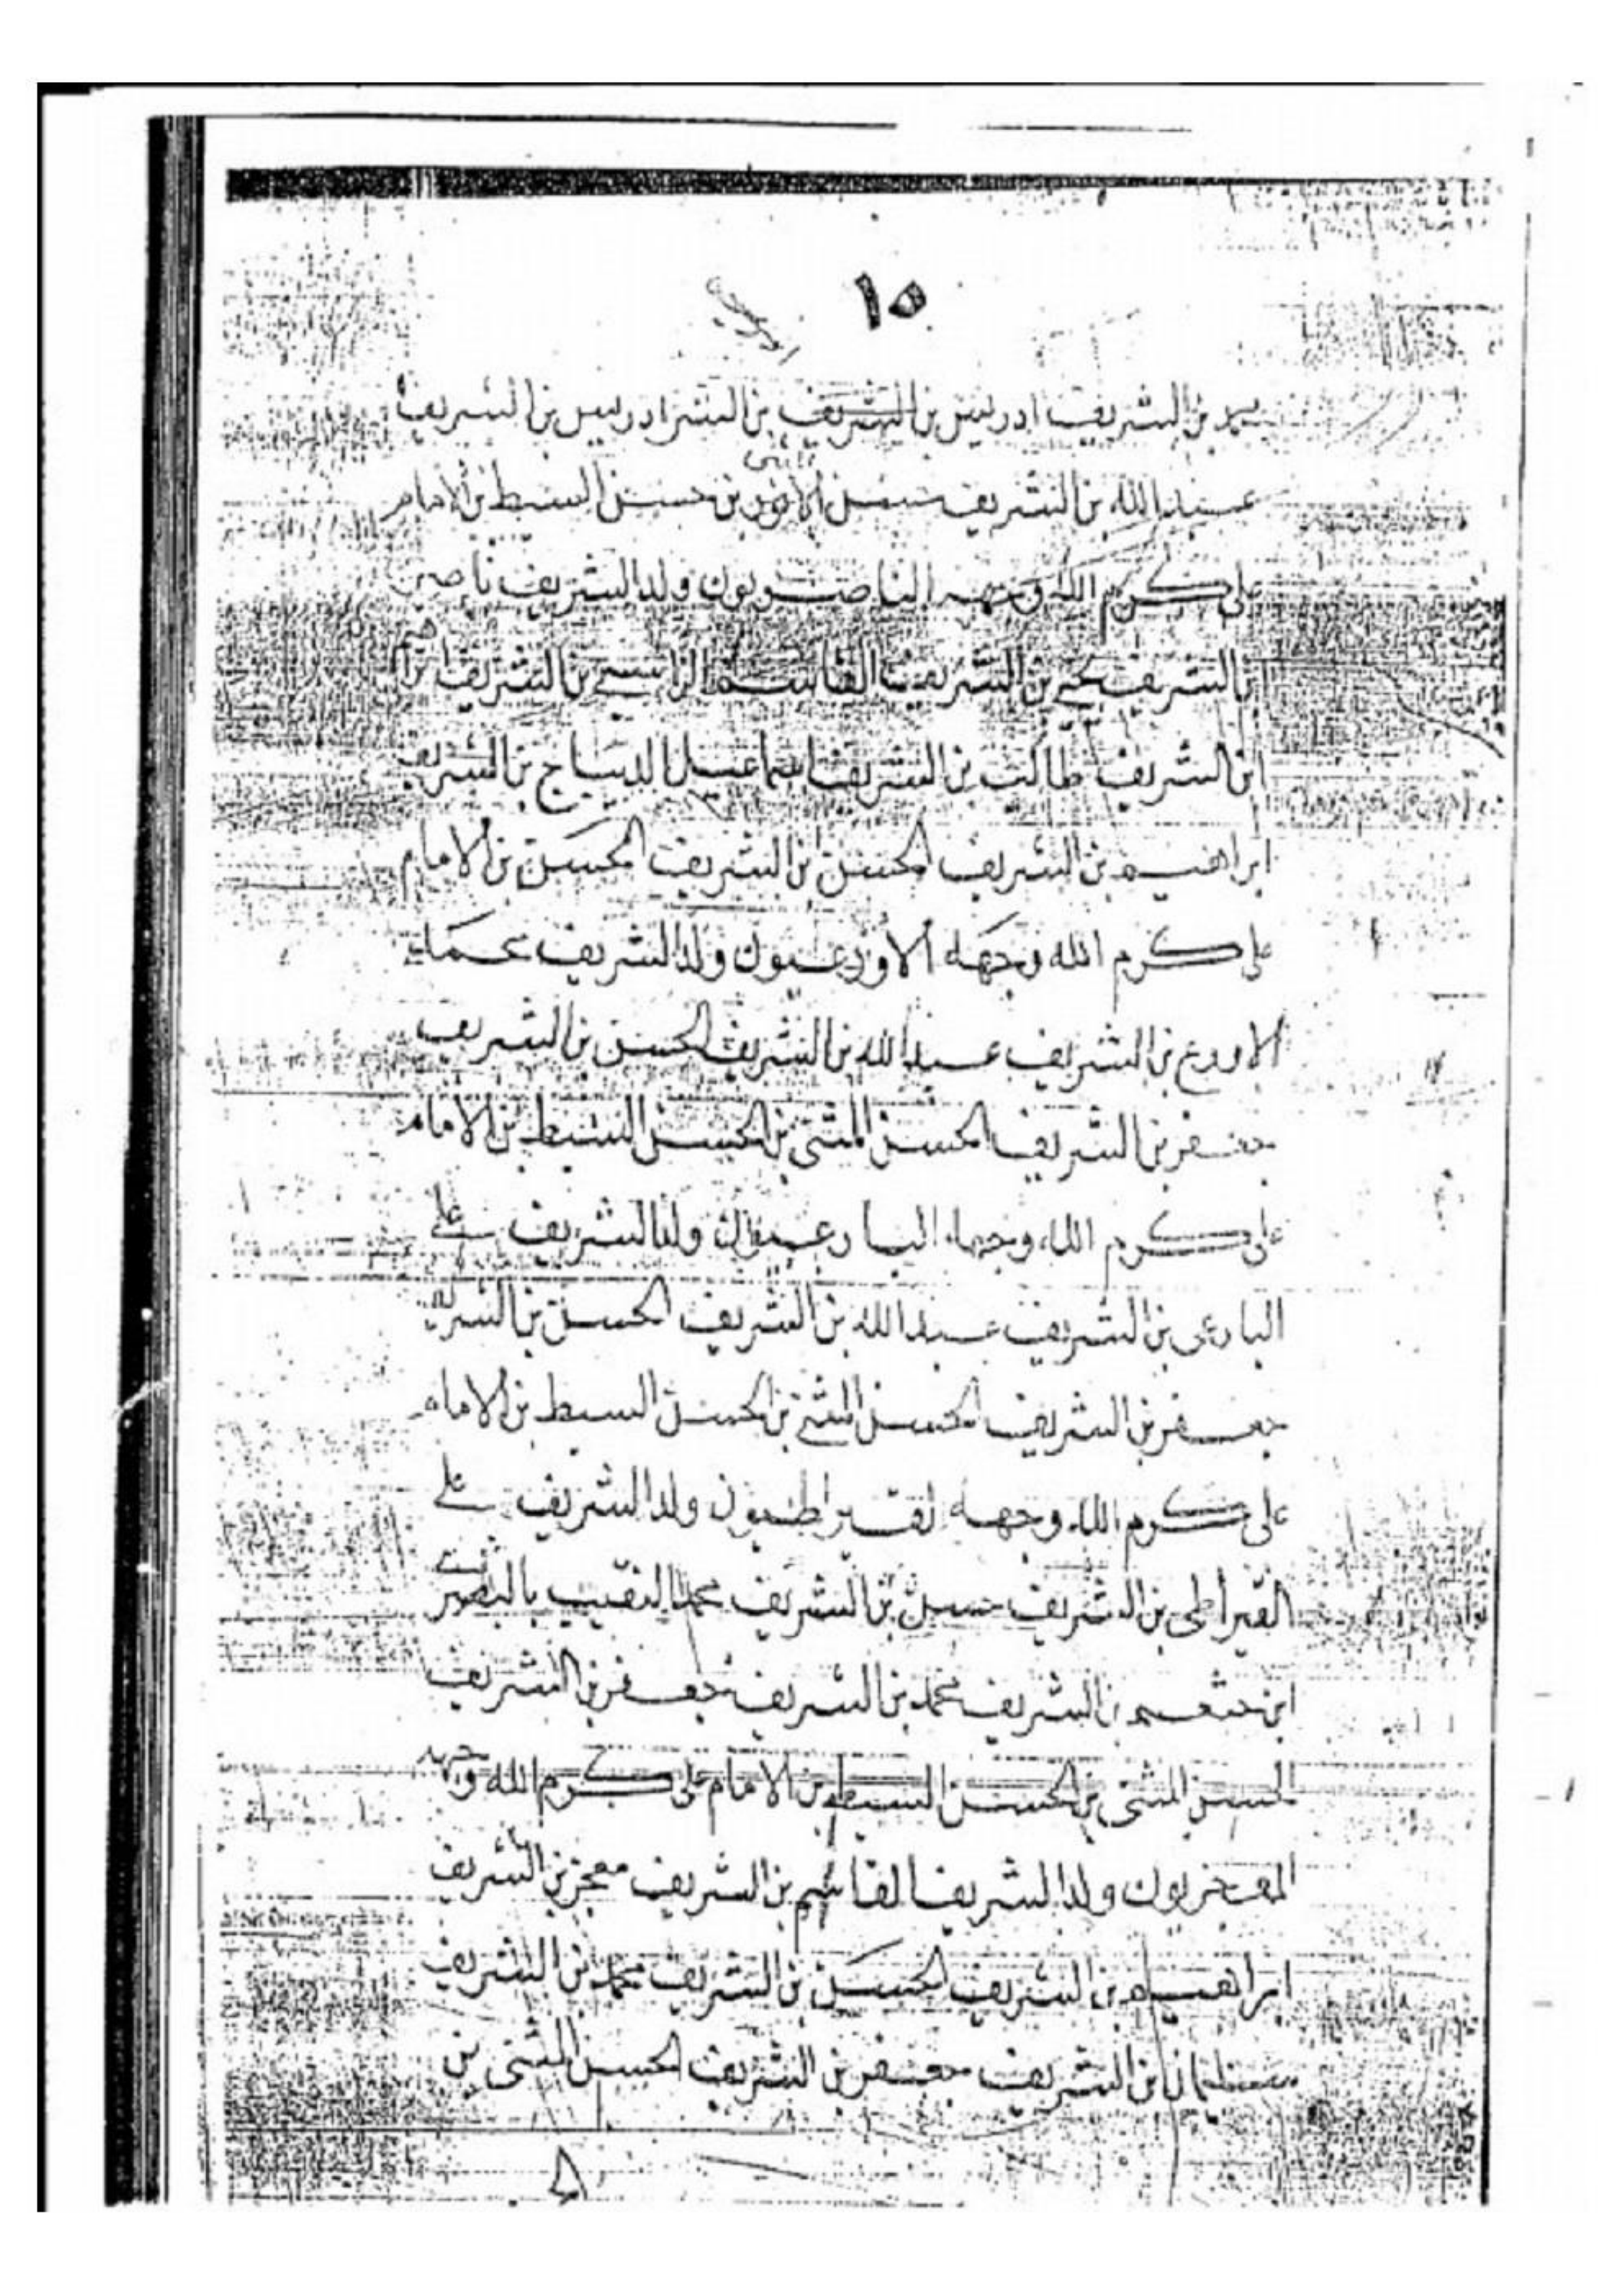 ١٥
محمد بن الشريف ادريس بن الشريف بن الشر ادريس بن الشريف
عبد الله بن الشريف حسن بن حسن السبط بن الامام
على كرم الله وجهه الناصريون ولد الشريف ناصر
ابن الشريف يحيى بن الشريف القاسم الراسى بن الشريف ابراهيم
ابن الشريف طالب بن الشريف اسماعيل الديباج بن الشريف
ابراهيم بن الشريف الحسن بن الشريف الحسن بن الامام
على كرم الله وجهه الاورعيون ولد الشريف محمد
الاورع بن الشريف عبد الله بن الشريف الحسن بن الشريف
جعفر بن الشريف الحسن المثنى بن الحسن السبط بن الامام
على كرم الله وجهه البارعيون ولد الشريف على
البارعى بن الشريف عبد الله بن الشريف الحسن بن الشريف
جعفر بن الشريف الحسن المثنى بن الحسن السبط بن الامام
على كرم الله وجهه القيراطيون ولد الشريف على
القيراطى بن الشريف حسين بن الشريف محمد النقيب بالبصرة
ابن بن الشريف محمد بن الشريف جعفر بن الشريف
الحسن المثنى بن الحسن السبط بن الامام على كرم الله وجهه
ولد الشريف القاسم بن الشريف بن الشريف
ابراهيم بن الشريف الحسن بن الشريف محمد بن الشريف
سليمان بن الشريف جعفر بن الشريف الحسن المثنى بن